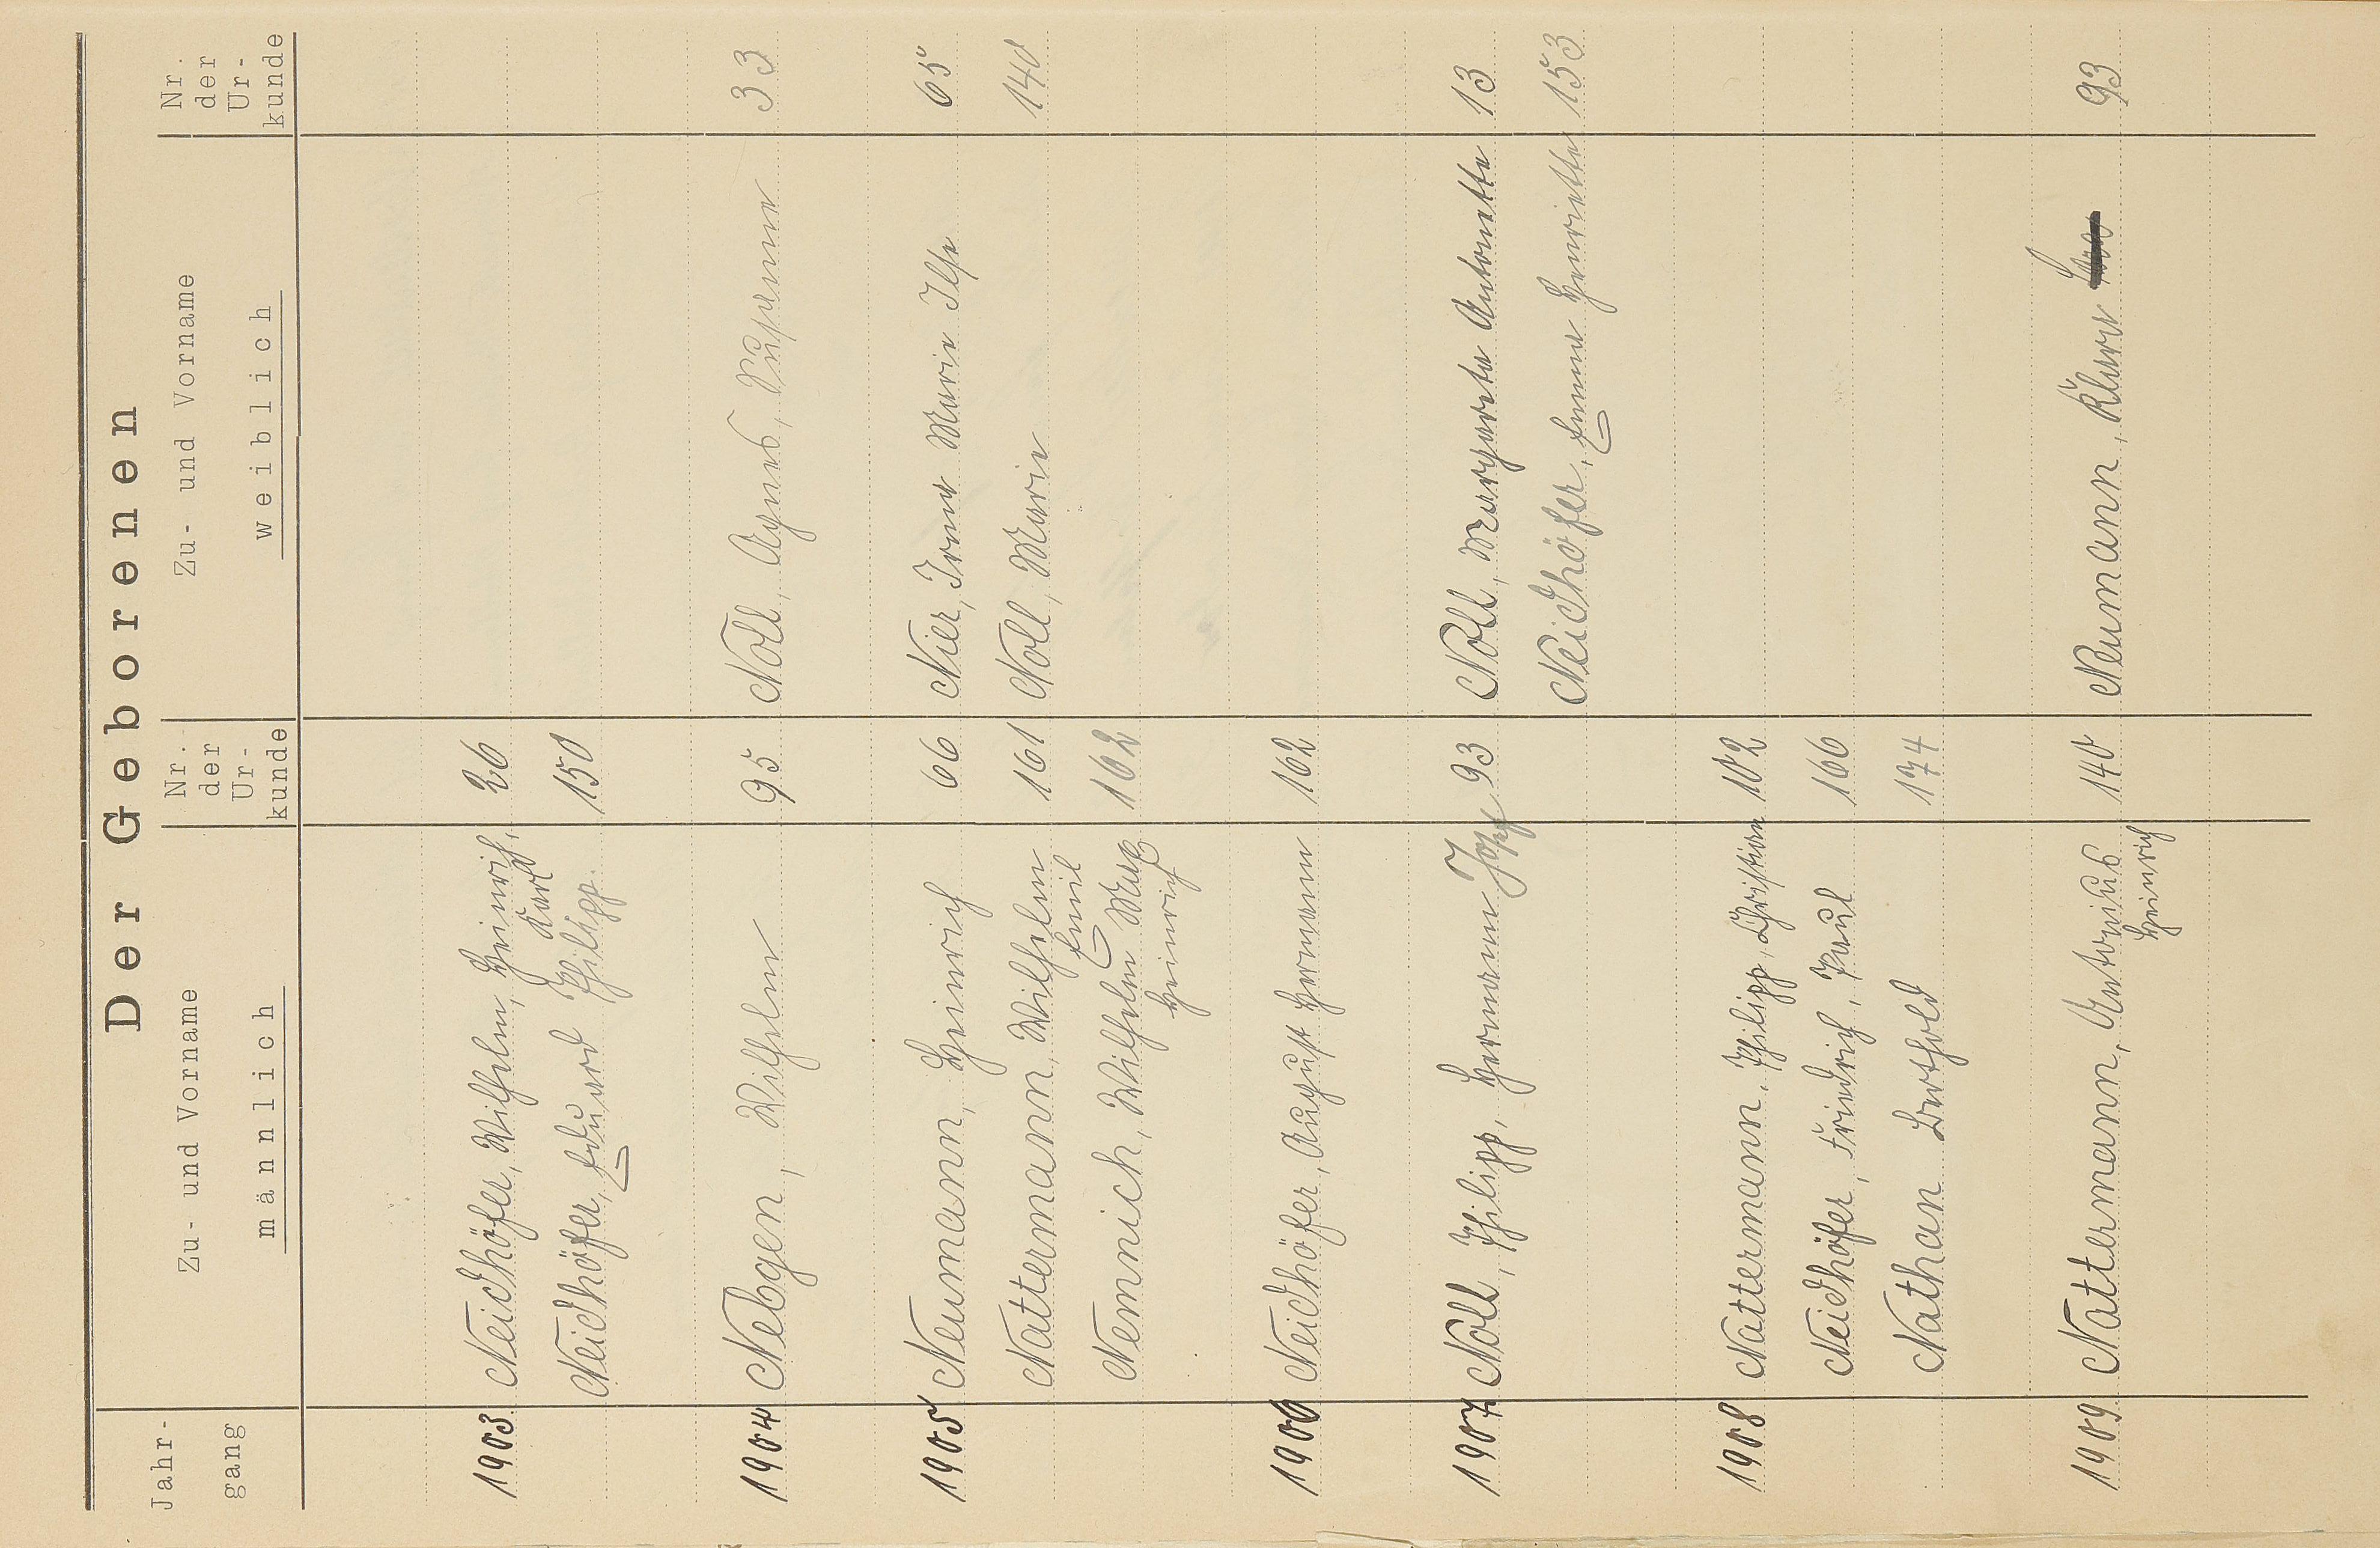 Der Geborenen
Jahr-
gang
Zu- und Vorname
männlich
Nr.
der
Ur-
kunde
Zu- und Vorname
weiblich
Nr.
der
Ur-
kunde
1903 Neidhöfer, Wilhelm, Heinrich, 26
Karl
Neidhöfer, Eduard Philipp. 150
1904 Nebgen, Wilhelm 95 Noll, Agnes, Susanna 33
1905 Neumann, Heinrich 66 Nier, Irma Marie Ilse 65
Nattermann, Wilhelm 161 Noll, Marie 140
Emil
Nemnich, Wilhelm Max 162
Heinrich
1906 Neidhöfer, August Hermann 162
1907 Noll, Philipp, Hermann Josef 93 Noll, Margareta Antonetta 13
Neidhöfer, Emma Henriette 153
1908 Nattermann, Philipp, Christian 102
Neidhöfer, Friedrich, Paul 166
Nathan Berthold 174
1909 Nattermann, Antonius 140 Neumann, Klara 93
Heinrich